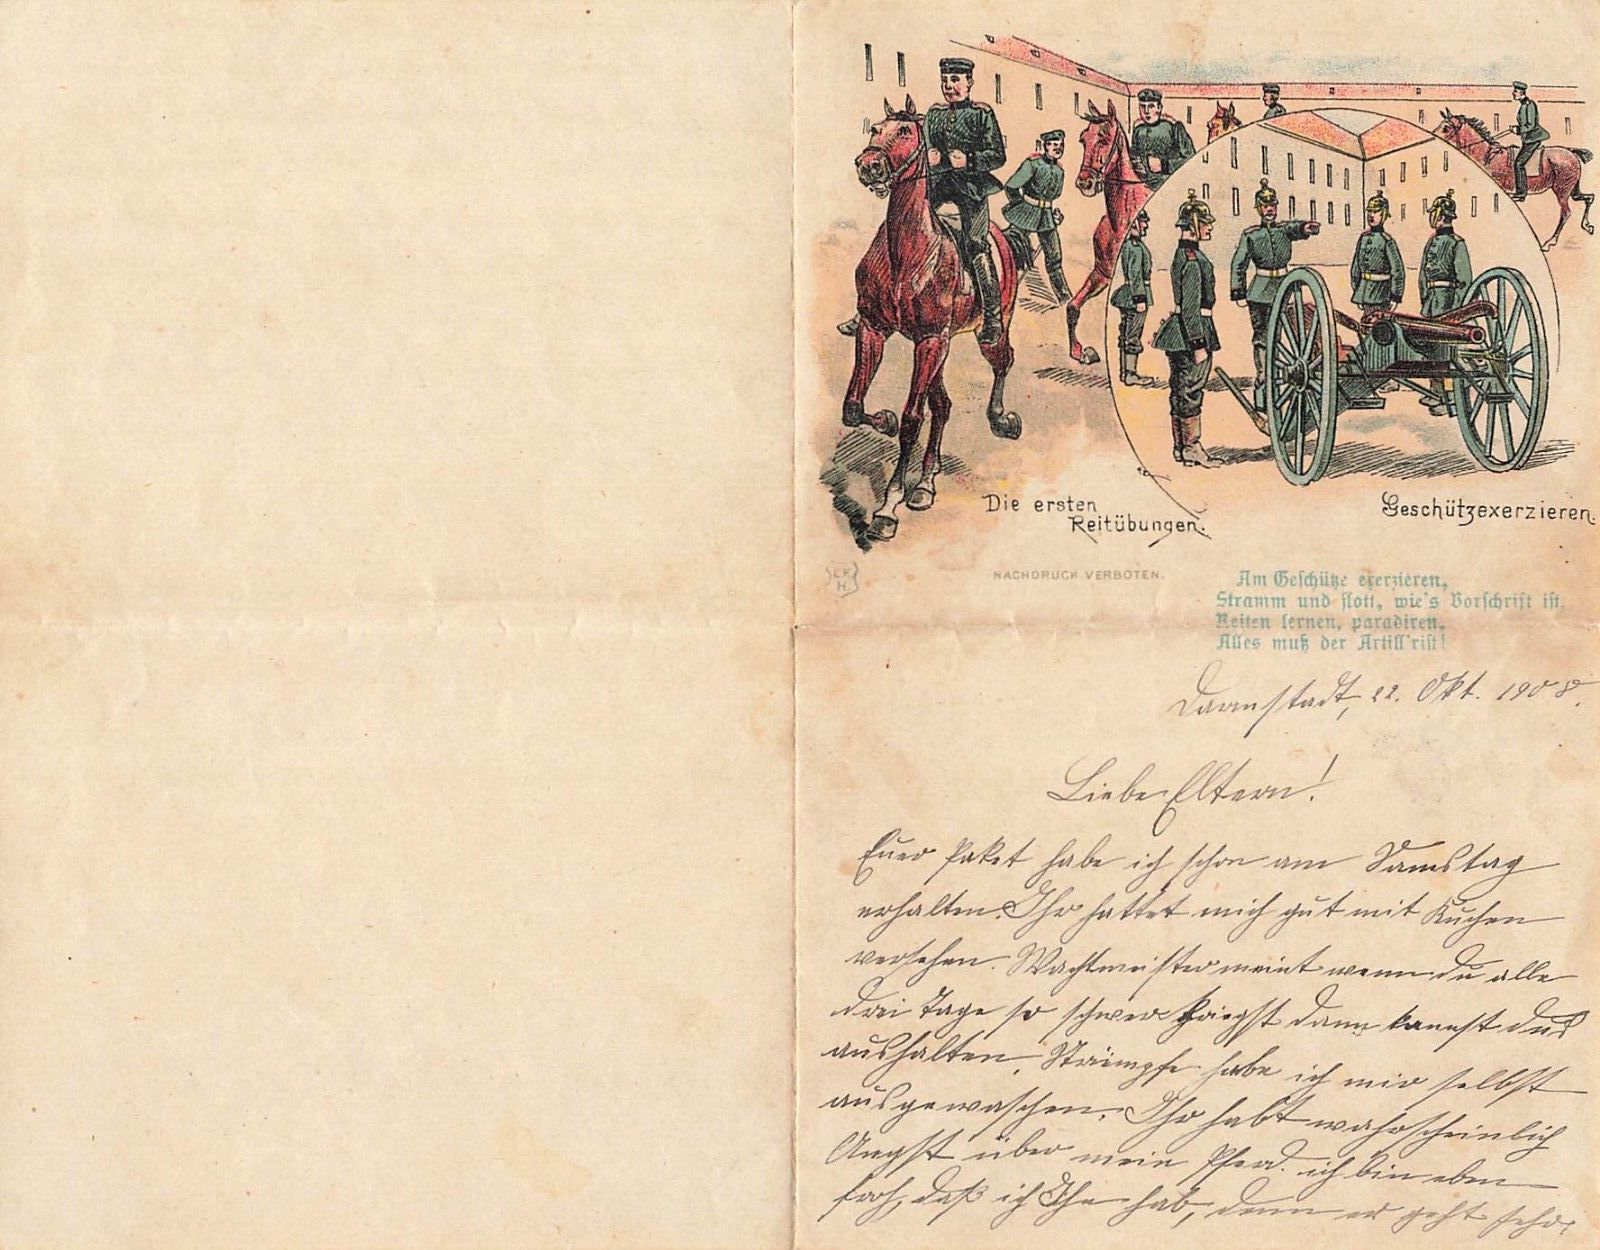 Die ersten
Reitübungen.
Geschützexerzieren.
L.K.
H.
NACHDRUCK VERBOTEN.
Am Geschütze exerzieren,
Stramm und flott, wie's Vorschrift ist,
Reiten lernen, paradiren,
Alles muß der Artill'rist!
Darmstadt, 22. Okt. 1908.
Liebe Eltern!
Euer Paket habe ich schon am Samstag
erhalten. Ihr hattet mich gut mit Kuchen
versehen. Wachtmeister meint wenn du alle
drei Tage so schwer kriegst dann kannst dus
aushalten. Strümpfe habe ich mir selbst
ausgewaschen. Ihr habt wahrscheinlich
Angst über mein Pferd. ich bin eben
froh, daß ich Ihn hab, denn er geht sehr